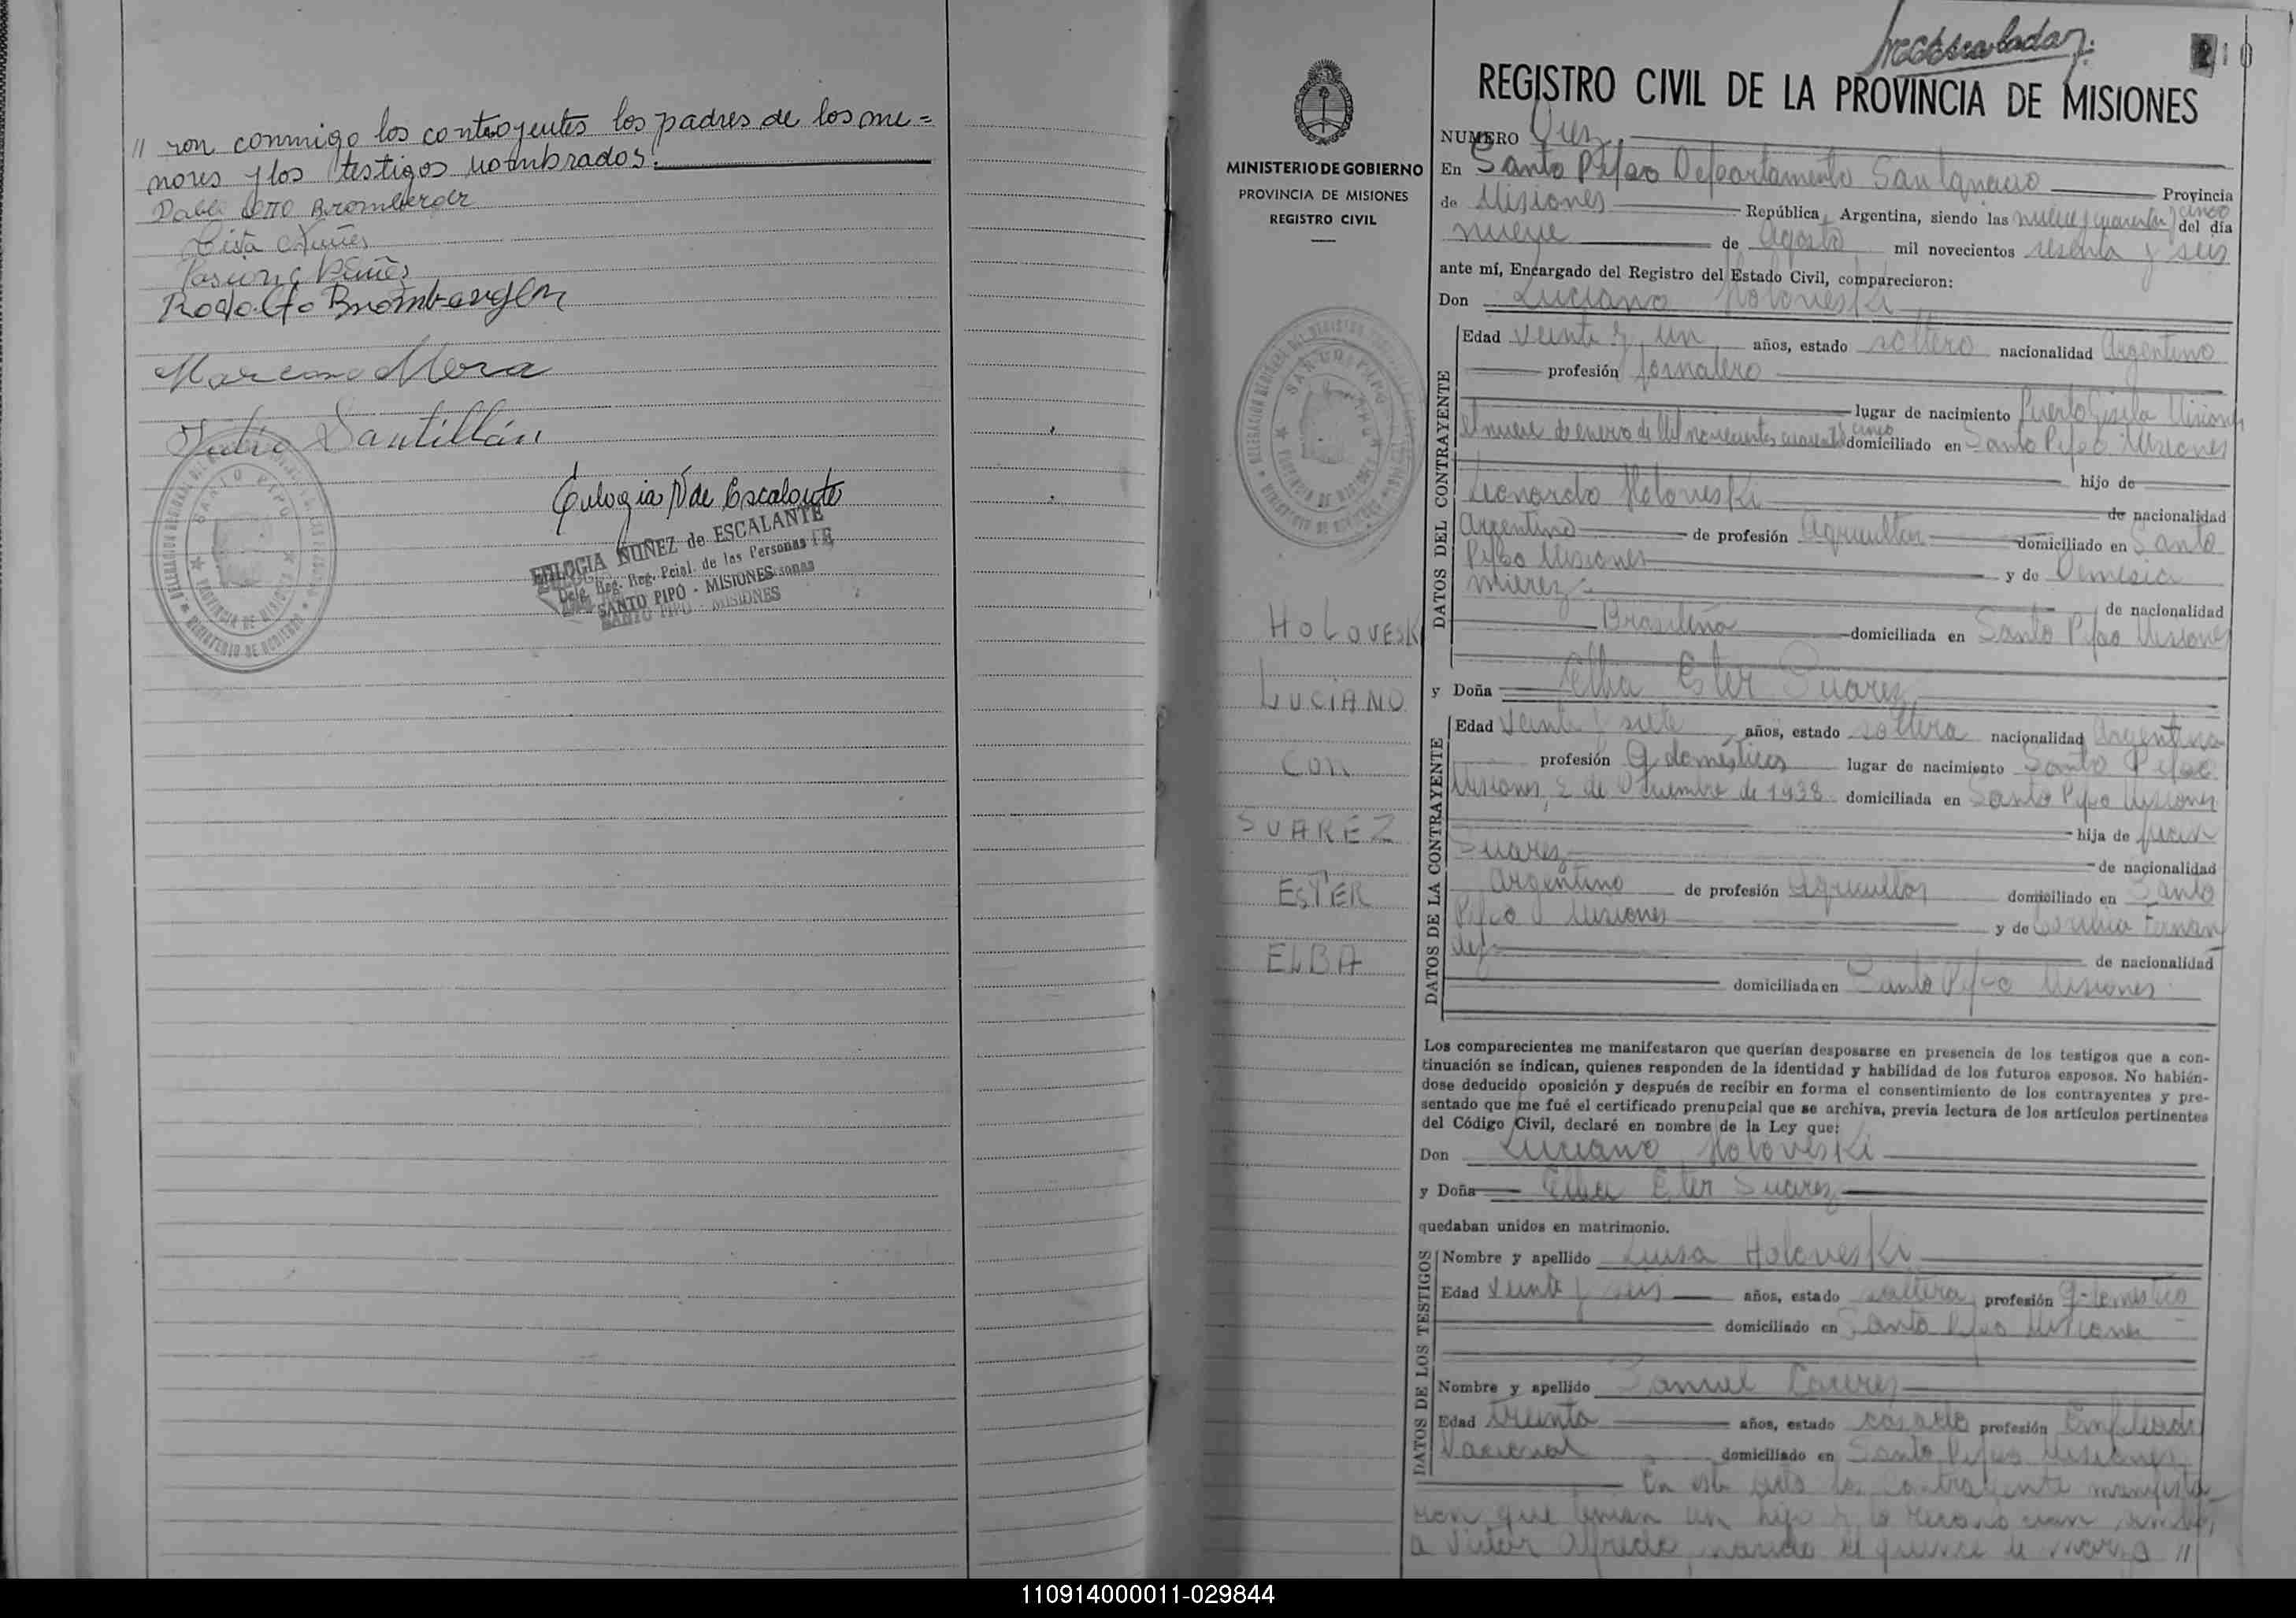 // ron conmigo los contrayentes los padres de los me=
nores y los testigos nombrados.
Pablo Otto Bromberger
Rodolfo Bromberger
Marcano Mora
Julio Santillán
Eulogia N de Escalante
EULOGIA NUÑEZ de ESCALANTE
Deleg. Reg. Pcial. de las Personas
SANTO PIPÓ - MISIONES
SANTO PIPÓ - MISIONES
10
REGISTRO CIVIL DE LA PROVINCIA DE MISIONES
MINISTERIO DE GOBIERNO
PROVINCIA DE MISIONES
REGISTRO CIVIL
HOLOVESKI
LUCIANO
CON
SUAREZ
ESTER
ELBA
NUMERO Diez
En Santo Pipo Departamento San Ignacio Provincia
de Misiones República Argentina, siendo las nueve y cuarenta y cinco del día
nueve de Agosto mil novecientos sesenta y seis
ante mí, Encargado del Registro del Estado Civil, comparecieron:
Don Luciano Holoveski
DATOS DEL CONTRAYENTE
Edad veinte y un años, estado soltero nacionalidad Argentino
profesión Jornalero
lugar de nacimiento Puerto Gisela Misiones
el nueve de enero de mil novecientos cuarenta y cinco domiciliado en Santo Pipo Misiones
hijo de
Leonardo Holoveski de nacionalidad
Argentino de profesión Agricultor domiciliado en Santo
Pipo Misiones y de Demesia
mierez de nacionalidad
Brasileña domiciliada en Santo Pipo Misiones
y Doña Elba Ester Suarez
DATOS DE LA CONTRAYENTE
Edad veinte y siete años, estado soltera nacionalidad Argentina
profesión Q. domésticos lugar de nacimiento Santo Pipo
Misiones, 2 de Diciembre de 1938 domiciliada en Santo Pipo Misiones
hija de Juan
Suarez de nacionalidad
Argentino de profesión Agricultor domiciliado en Santo
Pipo Misiones y de Fernan
dez de nacionalidad
domiciliada en Santo Pipo Misiones
Los comparecientes me manifestaron que querían desposarse en presencia de los testigos que a con-
tinuación se indican, quienes responden de la identidad y habilidad de los futuros esposos. No habién-
dose deducido oposición y después de recibir en forma el consentimiento de los contrayentes y pre-
sentado que me fué el certificado prenupcial que se archiva, previa lectura de los artículos pertinentes
del Código Civil, declaré en nombre de la Ley que:
Don Luciano Holoveski
y Doña Elba Ester Suarez
quedaban unidos en matrimonio.
DATOS DE LOS TESTIGOS
Nombre y apellido Luisa Holoveski
Edad veinte y seis años, estado soltera profesión Q. domestico
domiciliado en Santo Pipo Misiones
Nombre y apellido Daniel Caceres
Edad treinta años, estado casado profesión Empleado
Nacional domiciliado en Santo Pipo Misiones
En este acto los contrayente manifesta
ron que tenian un hijo y lo reconocian siendo,
a Victor Alfredo, nacido el quince de marzo //
110914000011-029844